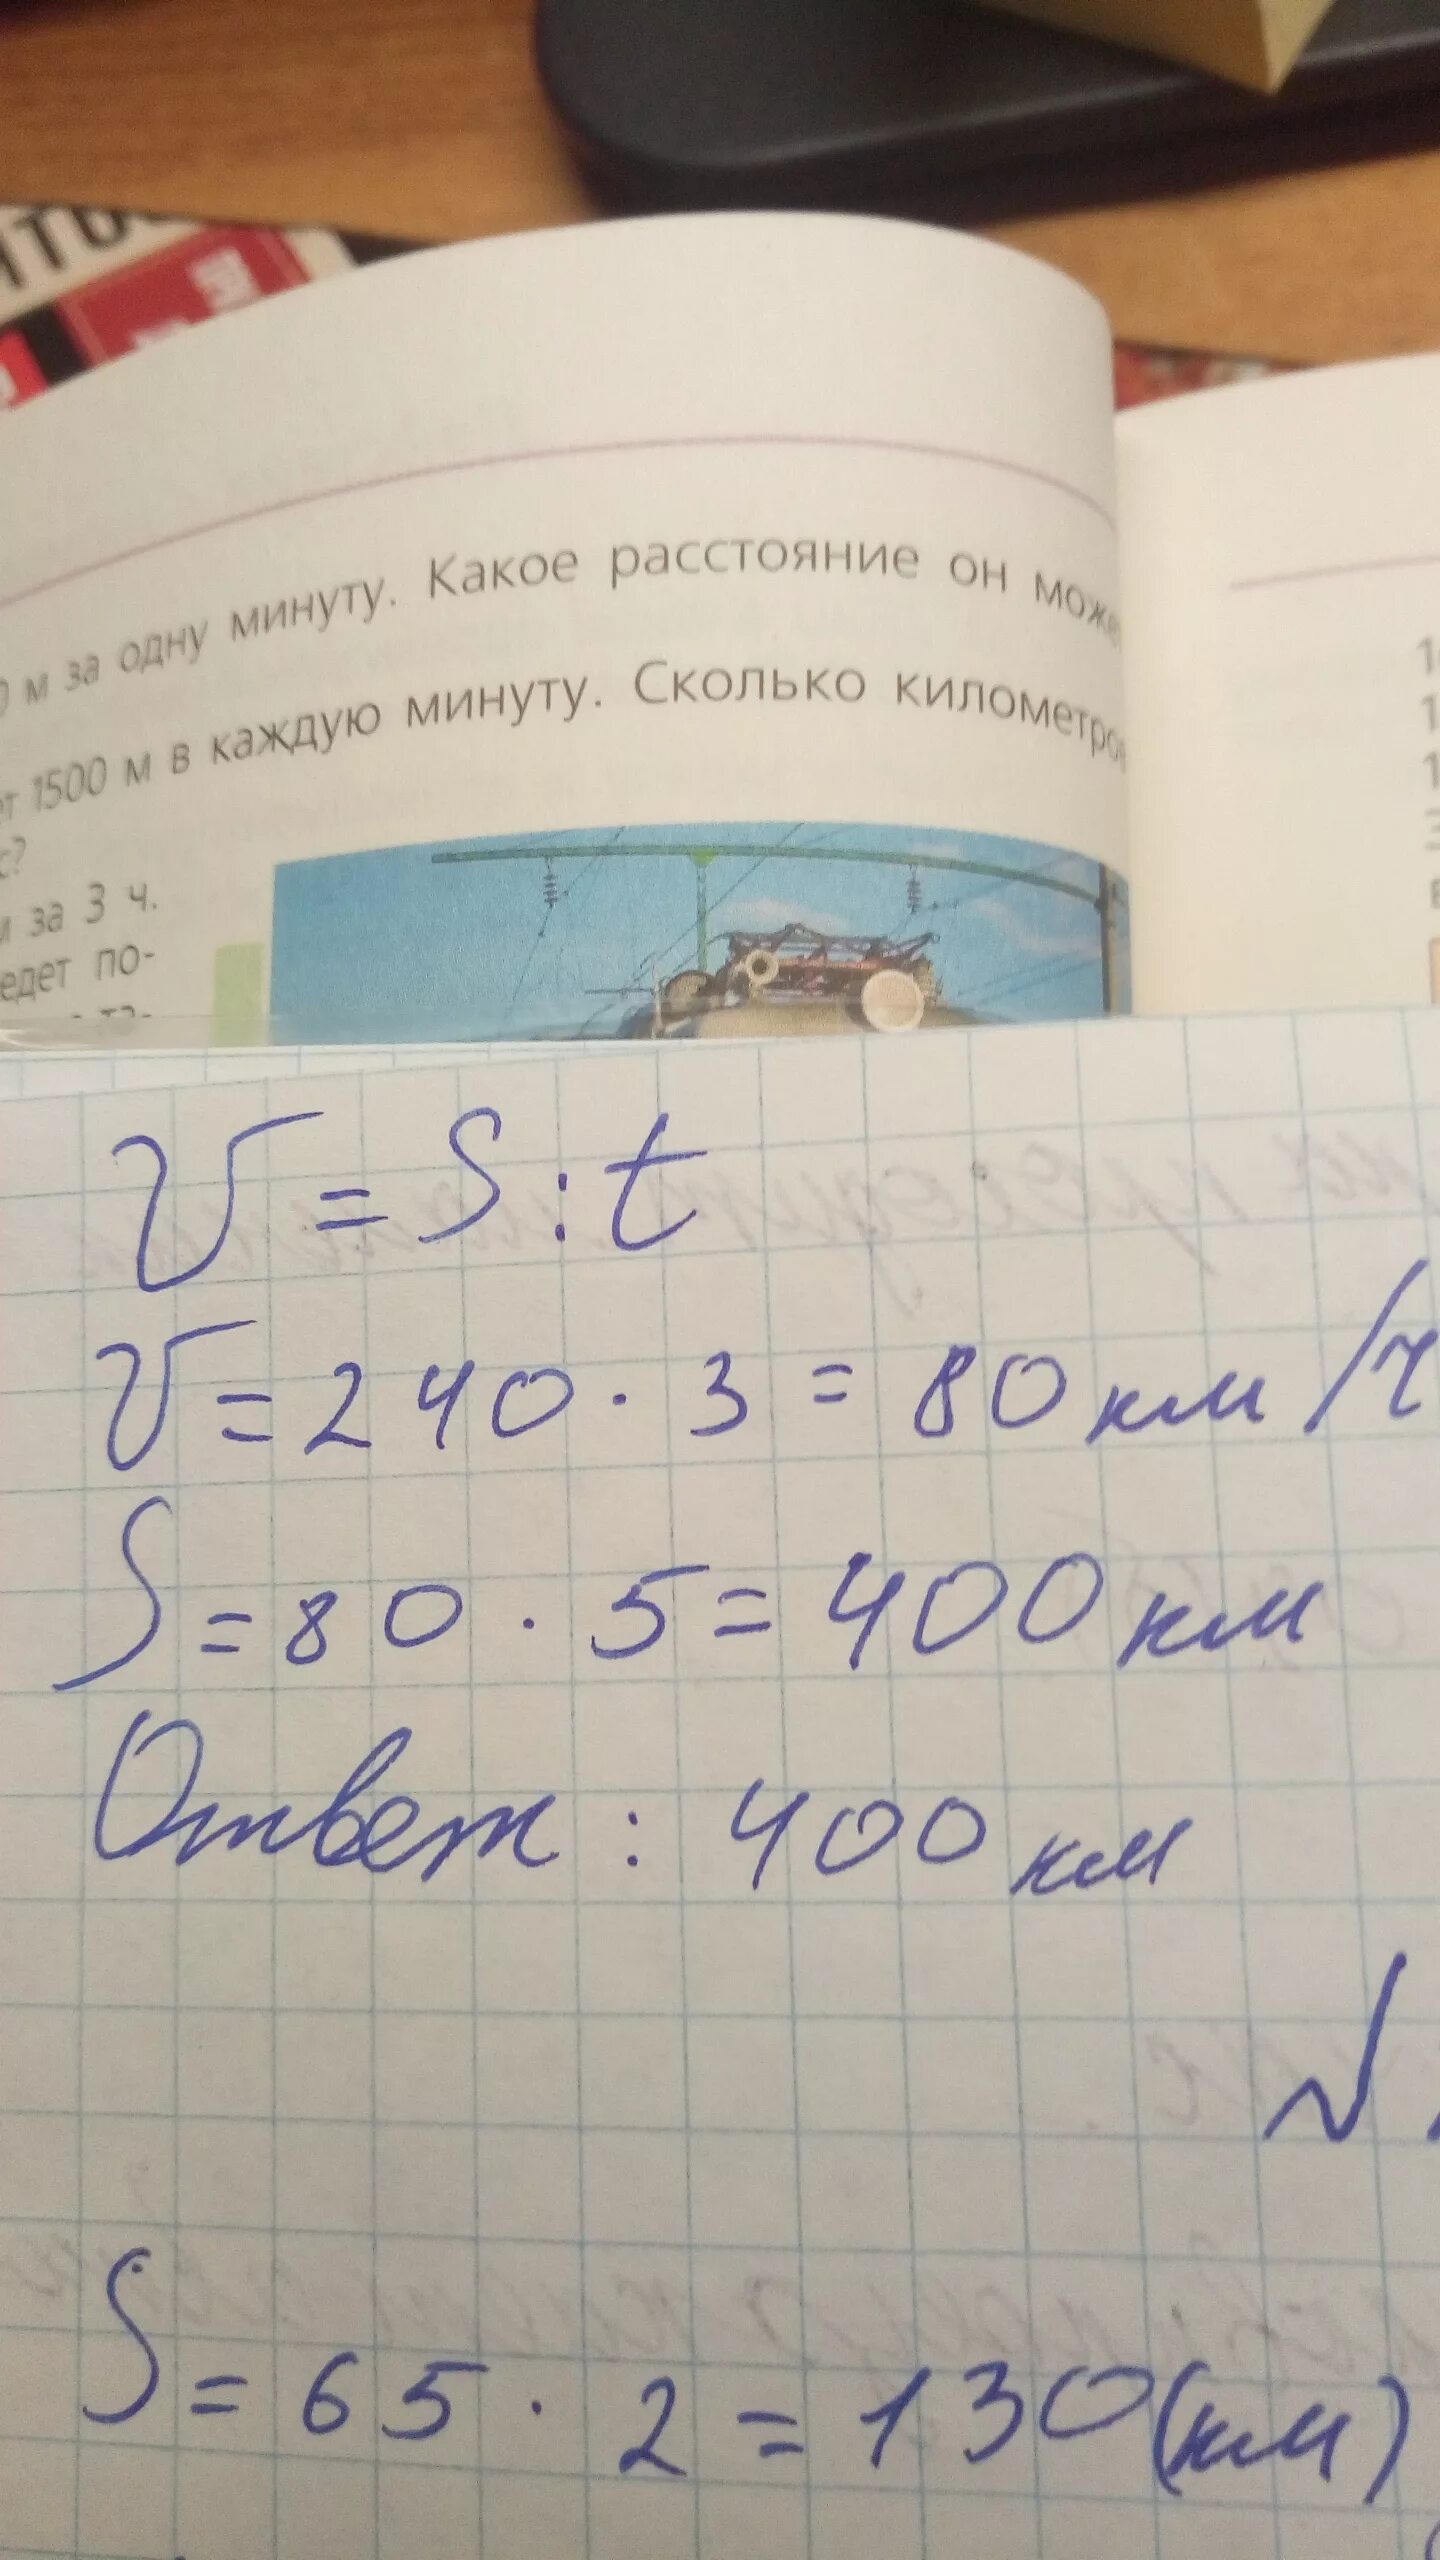 м за одну минуту. Какое расстояние он може
1500 м в каждую минуту. Сколько километров
с?
за 3 ч.
едет по-
V = S : t
V = 240 · 3 = 80 км/ч
S = 80 · 5 = 400 км
Ответ : 400 км
N
S = 65 · 2 = 130 (км)